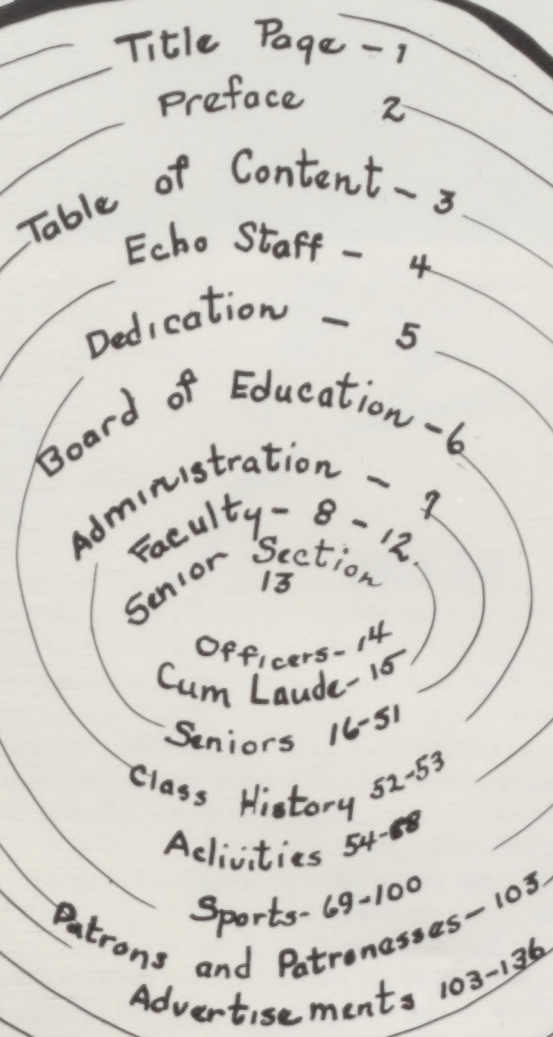 Title Page - 1
Preface 2
Table of Content - 3
Echo Staff - 4
Dedication - 5
Board of Education - 6
Administration - 7
Faculty - 8 - 12
Senior Section
13
Officers - 14
Cum Laude - 15
Seniors 16-51
Class History 52-53
Activities 54-68
Sports - 69-100
Patrons and Patronesses - 103
Advertisements 103-136